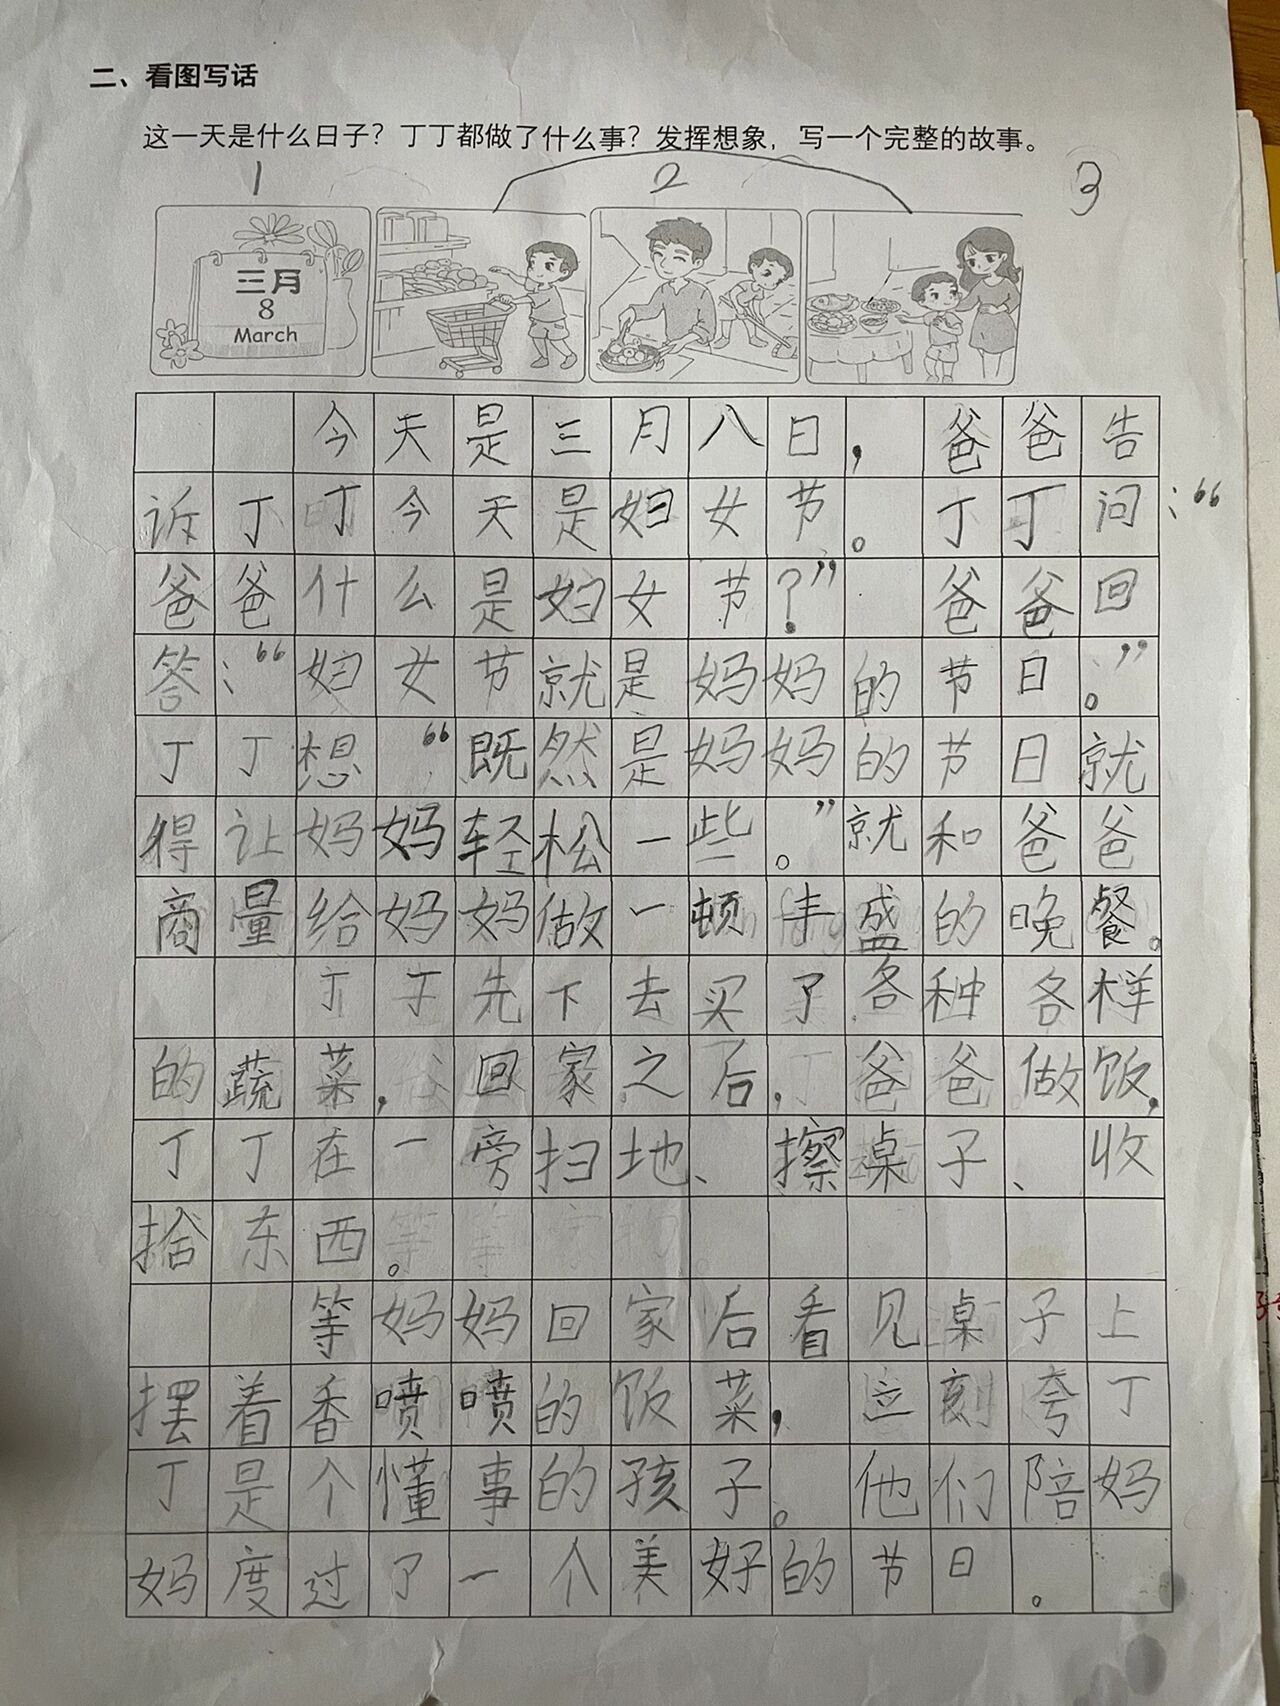 二、看图写话
这一天是什么日子？丁丁都做了什么事？发挥想象，写一个完整的故事。
1 2 3
三月
8
March
今天是三月八日，爸爸告
诉丁丁今天是妇女节。丁丁问：“
爸爸什么是妇女节？”爸爸回
答：“妇女节就是妈妈的节日。”
丁丁想“既然是妈妈的节日就
得让妈妈轻松一些。”就和爸爸
商量给妈妈做一顿丰盛的晚餐。
丁丁先下去买了各种各样
的蔬菜，回家之后，爸爸做饭，
丁丁在一旁扫地、擦桌子、收
拾东西。
等妈妈回家后看见桌子上
摆着香喷喷的饭菜，立刻夸丁
丁是个懂事的孩子。他们陪妈
妈度过了一个美好的节日。